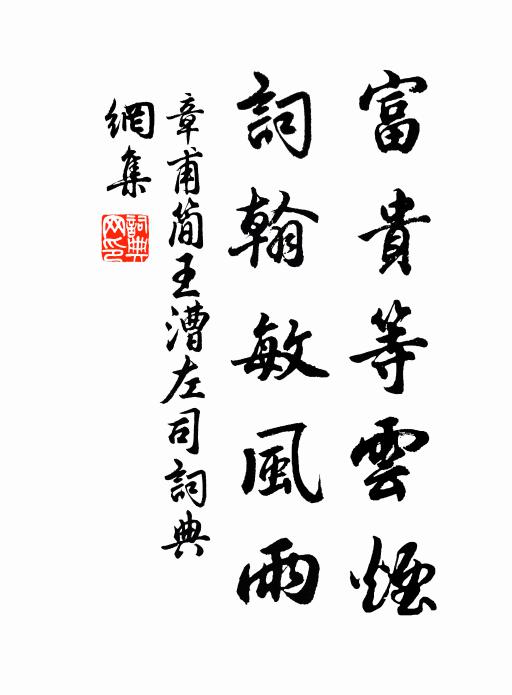 富貴等雲煙
詞翰敏風雨
章甫简王漕左司詞典
網集
詞典
网印